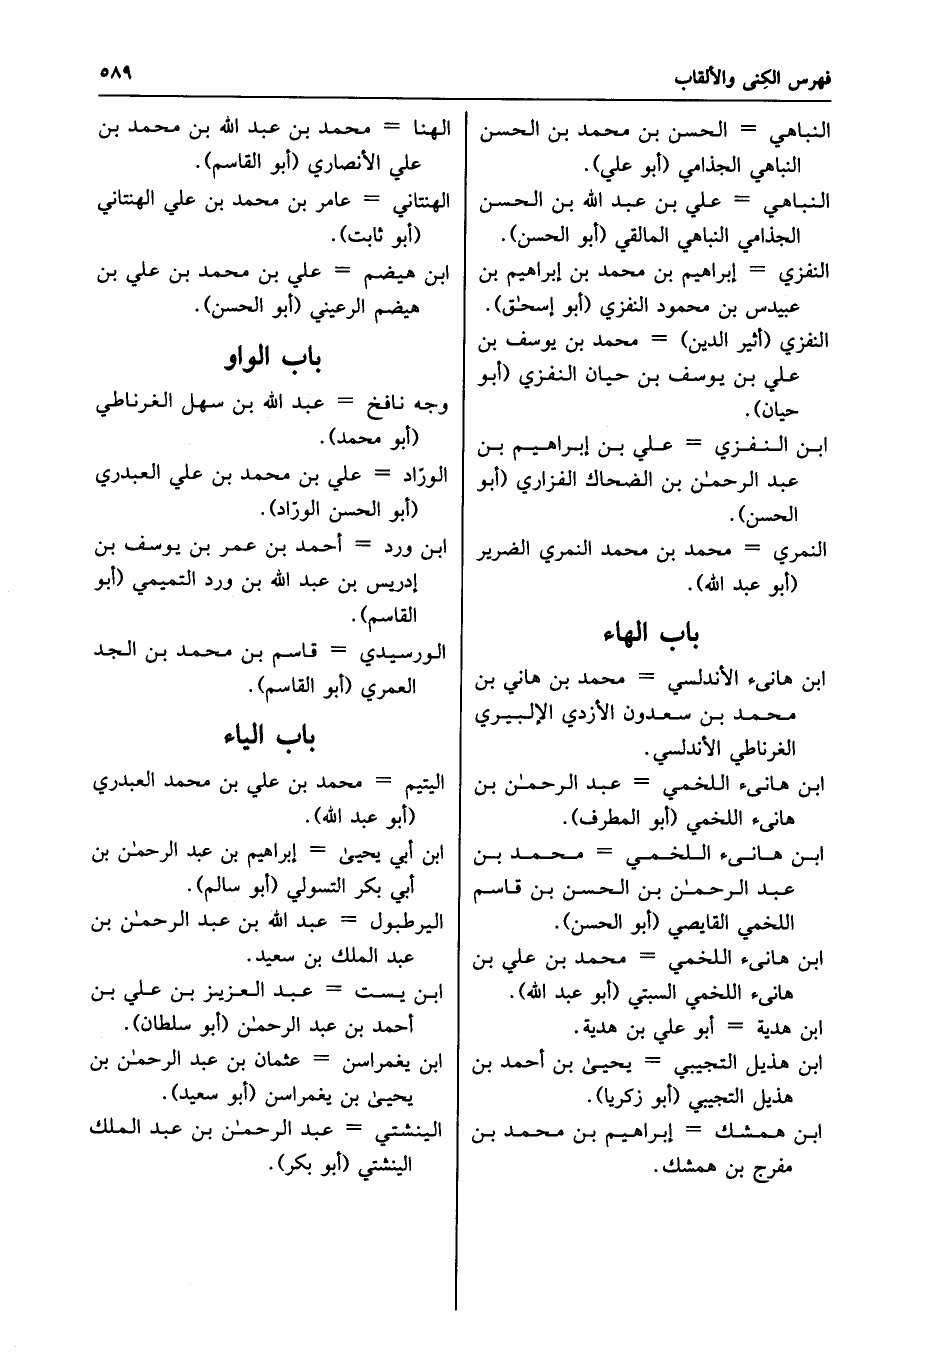 فهرس الكِنى والألقاب
٥٨٩
النباهي = الحسن بن محمد بن الحسن
النباهي الجذامي (أبو علي).
النباهي = علي بن عبد الله بن الحسن
الجذامي النباهي المالقي (أبو الحسن).
النفزي = إبراهيم بن محمد بن إبراهيم بن
عبيدس بن محمود النفزي (أبو إسحٰق).
النفزي (أثير الدين) = محمد بن يوسف بن
علي بن يوسف بن حيان النفزي (أبو
حيان).
ابن النفزي = علي بن إبراهيم بن
عبد الرحمٰن بن الضحاك الفزاري (أبو
الحسن).
النمري = محمد بن محمد النمري الضرير
(أبو عبد الله).
باب الهاء
ابن هانىء الأندلسي = محمد بن هاني بن
محمد بن سعدون الأزدي الإلبيري
الغرناطي الأندلسي.
ابن هانىء اللخمي = عبد الرحمٰن بن
هانىء اللخمي (أبو المطرف).
ابن هانىء اللخمي = محمد بن
عبد الرحمٰن بن الحسن بن قاسم
اللخمي القايصي (أبو الحسن).
ابن هانىء اللخمي = محمد بن علي بن
هانىء اللخمي السبتي (أبو عبد الله).
ابن هدية = أبو علي بن هدية.
ابن هذيل التجيبي = يحيىٰ بن أحمد بن
هذيل التجيبي (أبو زكريا).
ابن همشك = إبراهيم بن محمد بن
مفرج بن همشك.
الهنا = محمد بن عبد الله بن محمد بن
علي الأنصاري (أبو القاسم).
الهنتاني = عامر بن محمد بن علي الهنتاني
(أبو ثابت).
ابن هيضم = علي بن محمد بن علي بن
هيضم الرعيني (أبو الحسن).
باب الواو
وجه نافخ = عبد الله بن سهل الغرناطي
(أبو محمد).
الورّاد = علي بن محمد بن علي العبدري
(أبو الحسن الورّاد).
ابن ورد = أحمد بن عمر بن يوسف بن
إدريس بن عبد الله بن ورد التميمي (أبو
القاسم).
الورسيدي = قاسم بن محمد بن الجد
العمري (أبو القاسم).
باب الياء
اليتيم = محمد بن علي بن محمد العبدري
(أبو عبد الله).
ابن أبي يحيىٰ = إبراهيم بن عبد الرحمٰن بن
أبي بكر التسولي (أبو سالم).
اليرطبول = عبد الله بن عبد الرحمٰن بن
عبد الملك بن سعيد.
ابن يست = عبد العزيز بن علي بن
أحمد بن عبد الرحمٰن (أبو سلطان).
ابن يغمراسن = عثمان بن عبد الرحمٰن بن
يحيىٰ بن يغمراسن (أبو سعيد).
الينشتي = عبد الرحمٰن بن عبد الملك
الينشتي (أبو بكر).